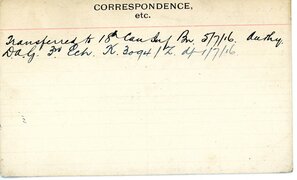 CORRESPONDENCE,
etc.
Transferred to 18th Can Inf Bn 5/7/16. Authy.
D.A.G. 3rd Ech. K. 3094/Z. d/- 1/7/16.